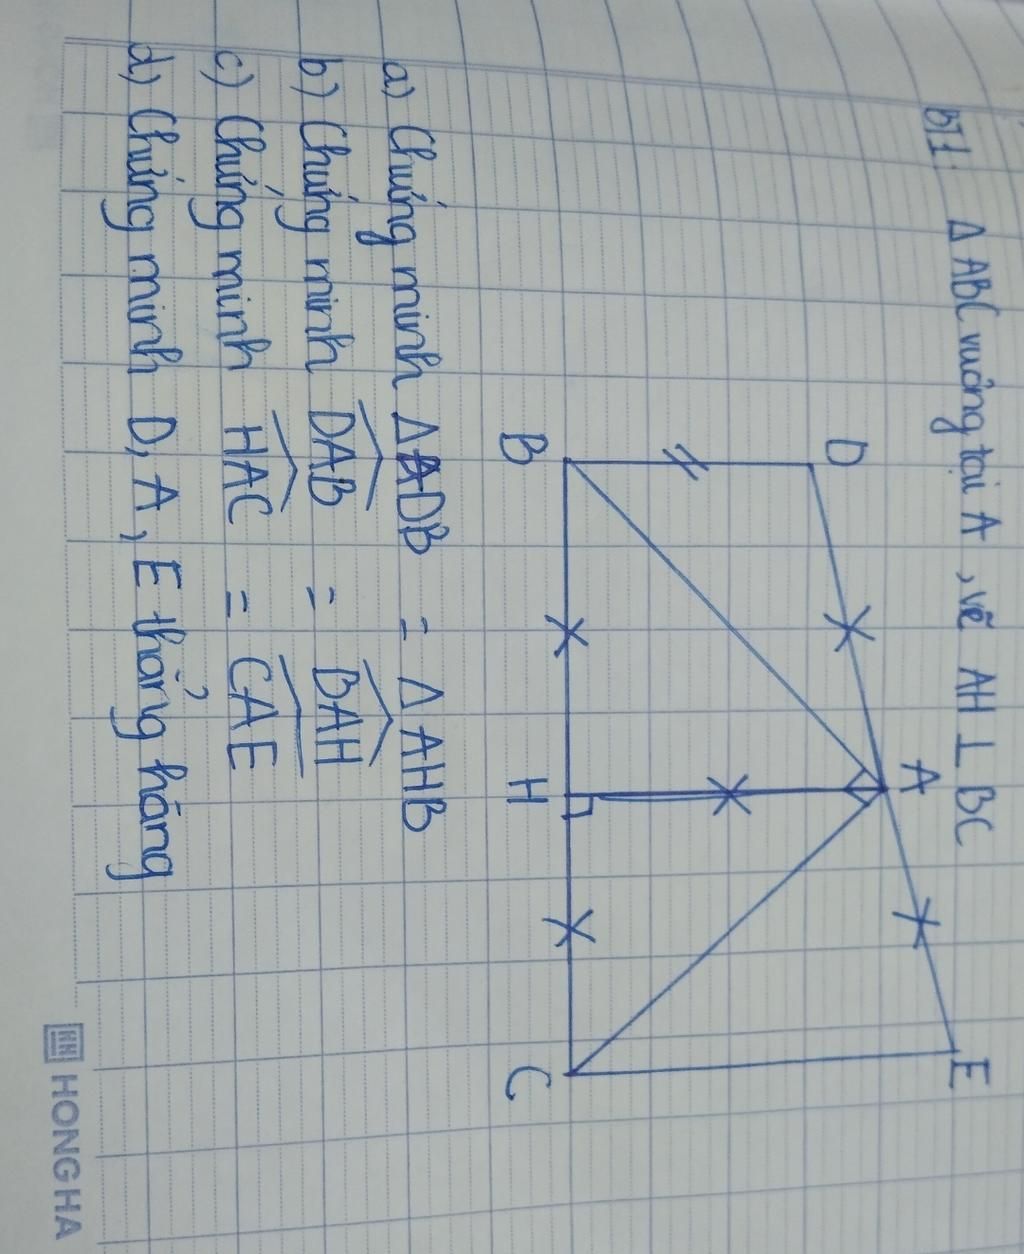 BT1: Δ ABC vuông tại A, vẽ AH ⊥ BC
D A E
B H C
a) Chứng minh Δ ADB = Δ AHB
b) Chứng minh DAB = BAH
c) Chứng minh HAC = CAE
d) Chứng minh D, A, E thẳng hàng
HONG HA